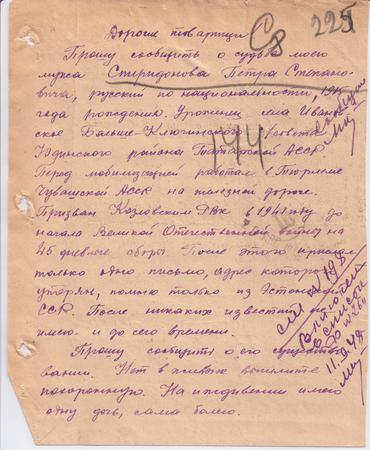 Дорогие товарищи
225
С8
Прошу сообщить о судьбе моего
мужа Спиридонова Петра Степано-
вича, русский по национальности, 1915
года рождения. Уроженец села Иванов-
ское Больше-Ключинского с/совета
Юдинского района Татарской АССР.
144
Перед мобилизацией работал в Тюрлеме
Чувашской АССР на железной дороге.
Призван Козловским РВК в 1941 году до
начала Великой Отечественной войны на
45 дневные сборы. После этого
только одно письмо, адрес которого
утерян, помню только из Эстонской
ССР. После никаких известий не
имею и до сего времени.
Прошу сообщить о его существо
вании. Нет в живых вышлите
похоронную. На иждивении имею
одну дочь, сама болею.
Включен
в список
11. 48